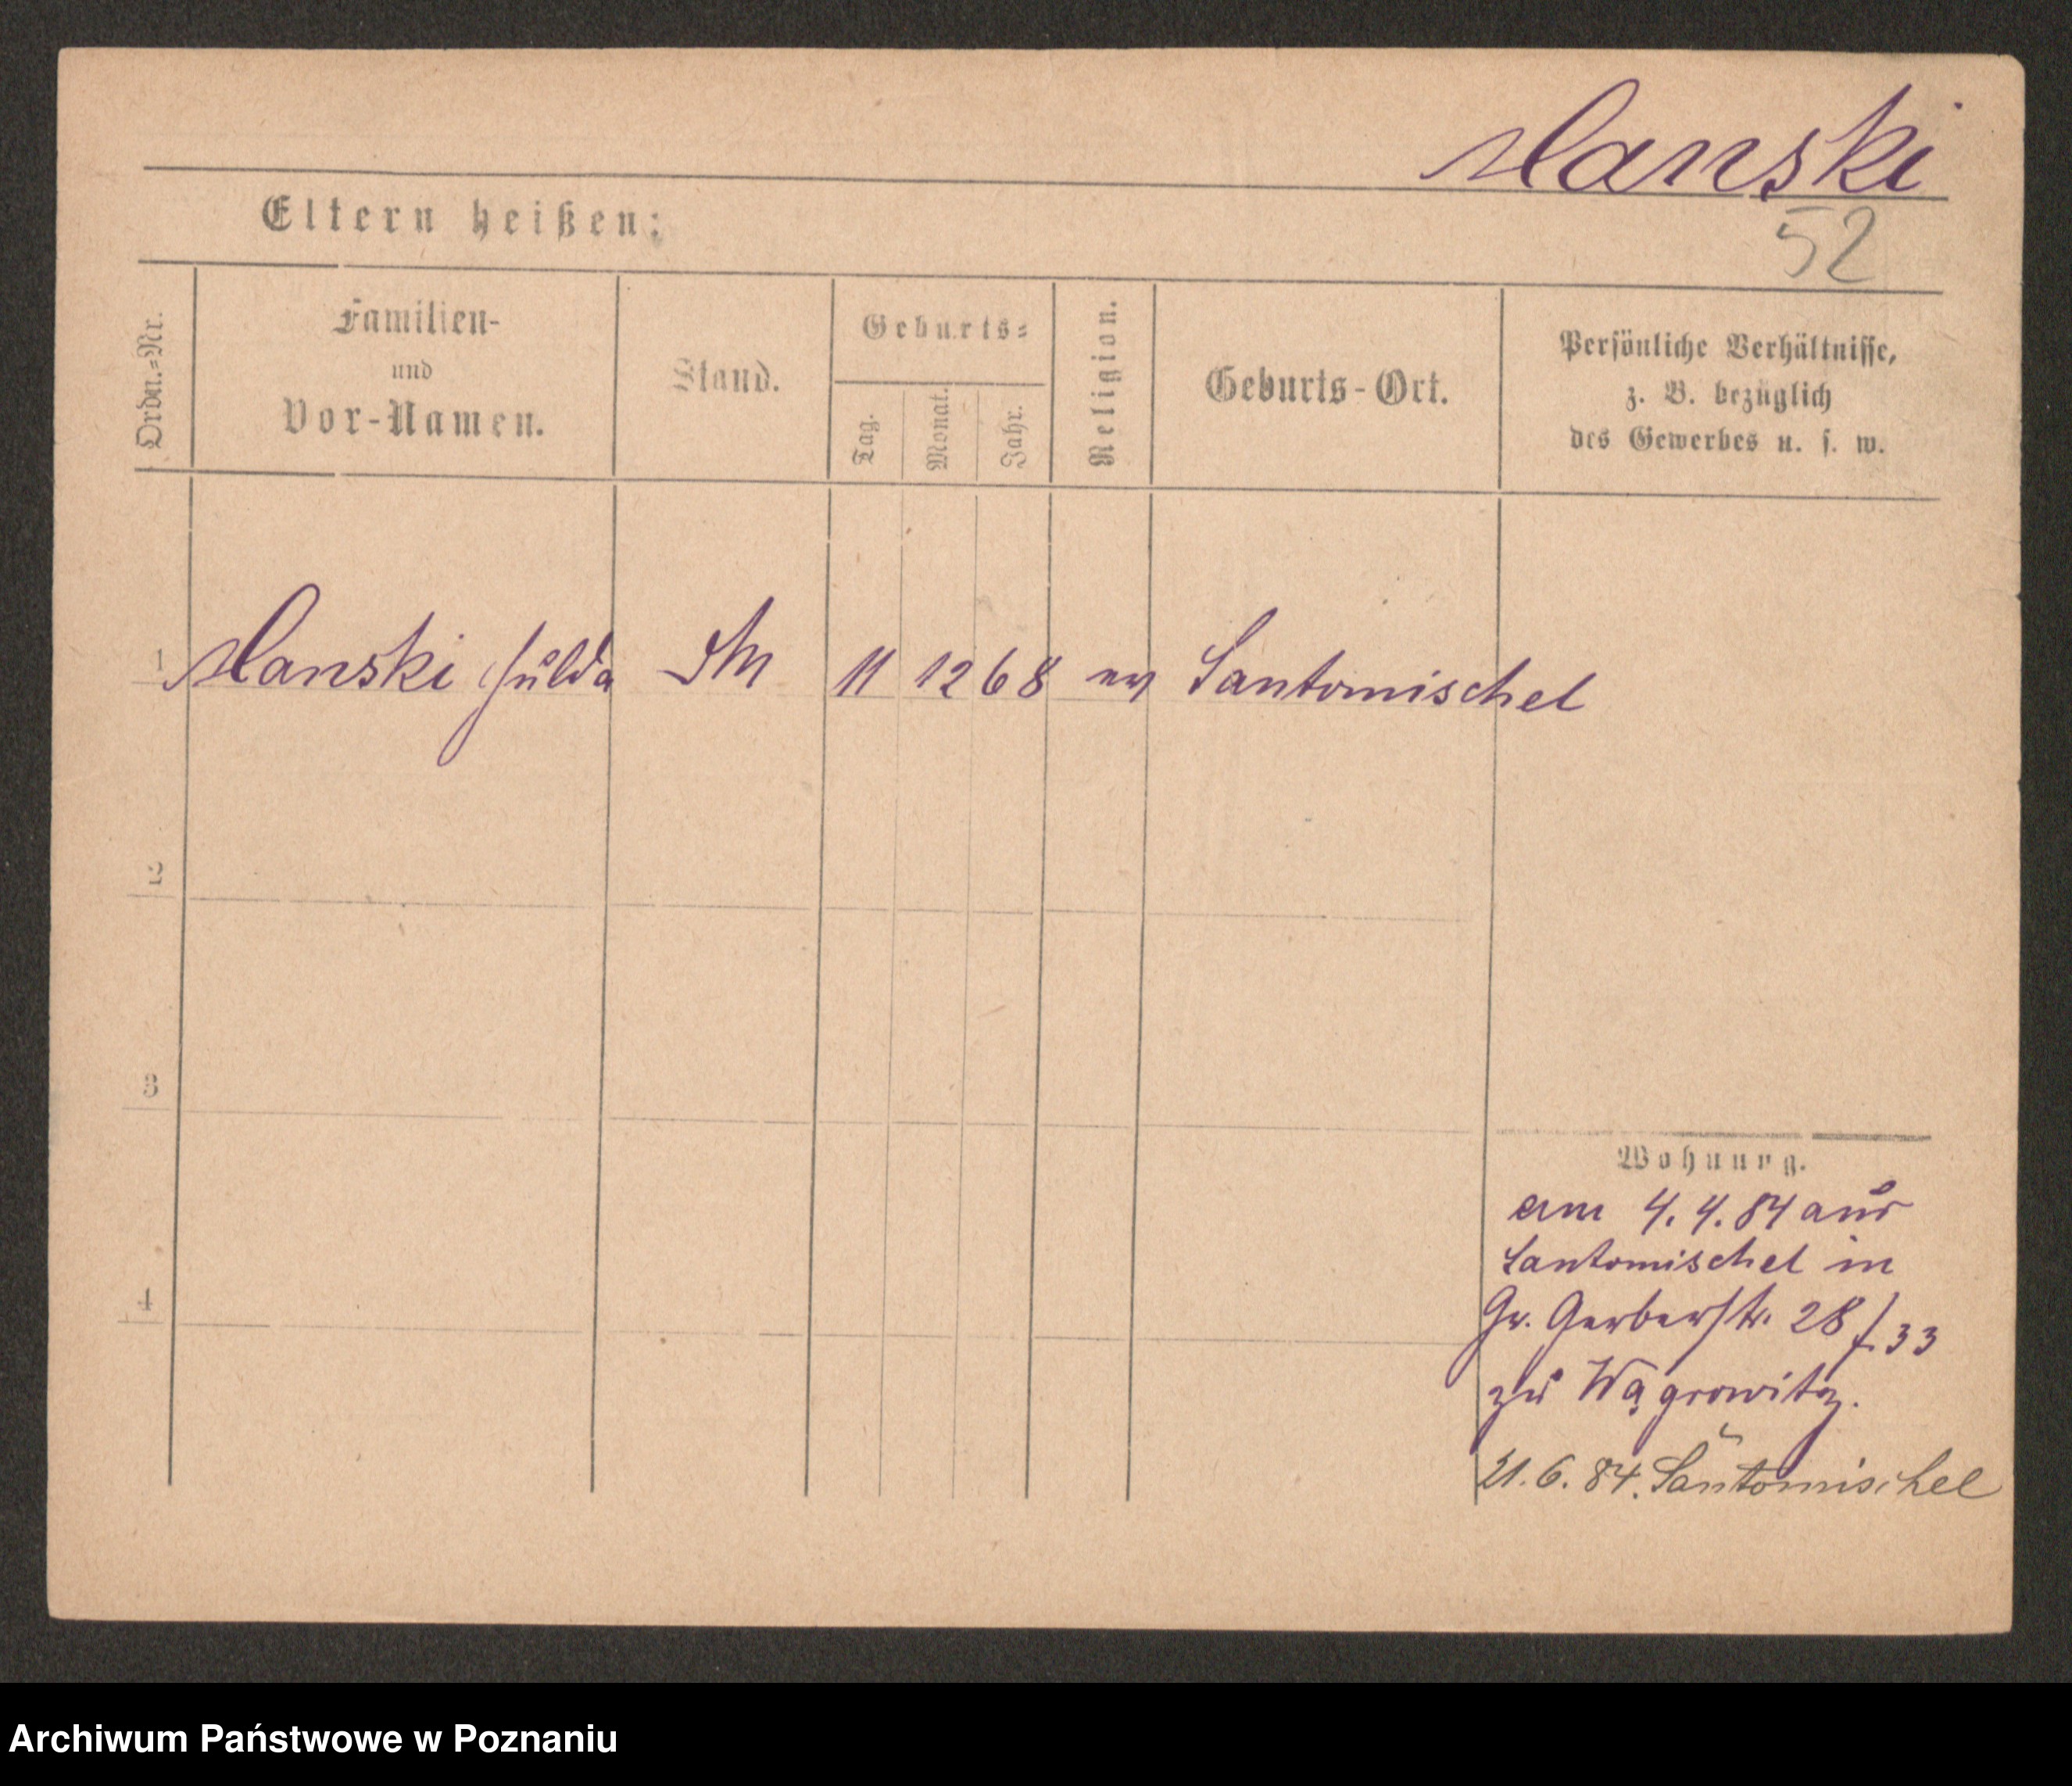 Manski
52
Eltern heißen:
Ordn.=Nr.
Familien-
und
Vor-Namen.
Stand.
Geburts=
Tag.
Monat.
Jahr.
Religion.
Geburts-Ort.
Persönliche Verhältnisse,
z. B. bezüglich
des Gewerbes u. s. w.
1 Manski Hulda 11 12 68 ev Santomischel
2
3
4
Wohnung.
am 4. 4. 84 aus
Santomischel in
Gr. Gerberstr. 28 / 33
zu Wągrowitz.
21. 6. 84. Santomischel
Archiwum Państwowe w Poznaniu